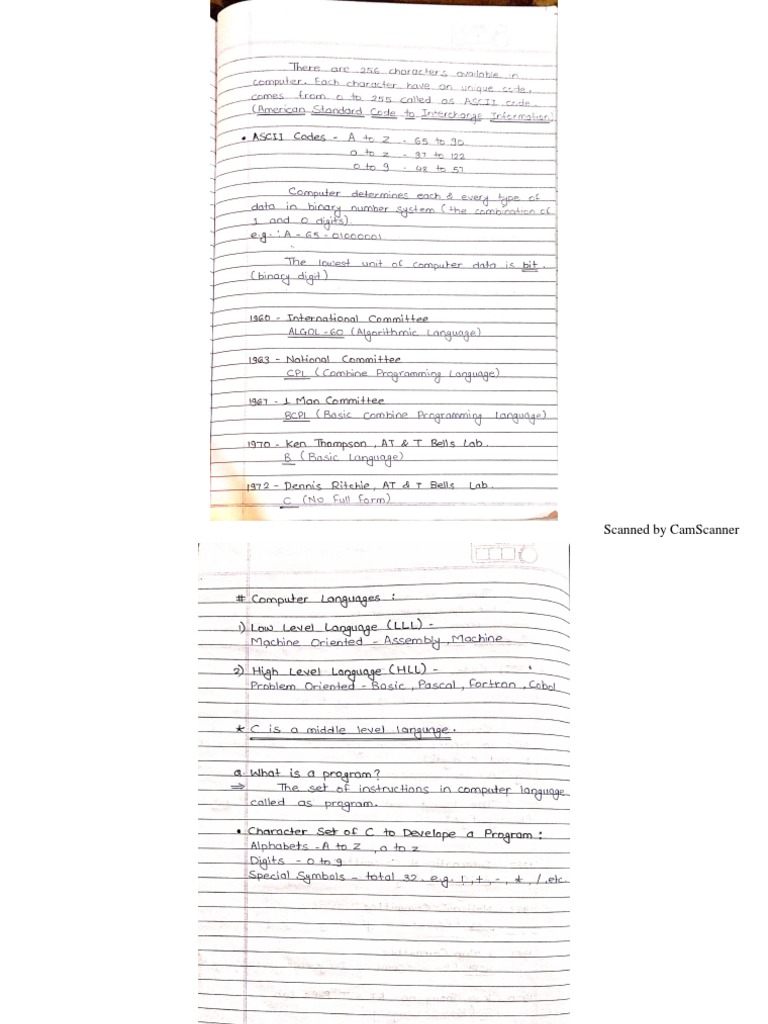 There are 256 characters available in
computer. Each character have an unique code,
comes from 0 to 255 called as ASCII code.
(American Standard Code to Interchange Information)
• ASCII Codes - A to Z - 65 to 90
a to z - 97 to 122
0 to 9 - 48 to 57
Computer determines each & every type of
data in binary number system (the combination of
1 and 0 digits).
e.g.: A - 65 - 01000001
The lowest unit of computer data is bit.
(binary digit)
1960 - International Committee
ALGOL-60 (Algorithmic Language)
1963 - National Committee
CPL (Combine Programming Language)
1967 - 1 Man Committee
BCPL (Basic Combine Programming Language)
1970 - Ken Thompson, AT & T Bells Lab.
B (Basic Language)
1972 - Dennis Ritchie, AT & T Bells Lab.
C (No Full form)
Scanned by CamScanner
# Computer Languages :
1) Low Level Language (LLL) -
Machine Oriented - Assembly, Machine
2) High Level Language (HLL) -
Problem Oriented - Basic, Pascal, Fortran, Cobol
* C is a middle level language.
Q. What is a program?
⇒ The set of instructions in computer language
called as program.
• Character Set of C to Develope a Program :
Alphabets - A to Z, a to z
Digits - 0 to 9
Special Symbols - total 32. e.g. !, +, -, *, /, etc.